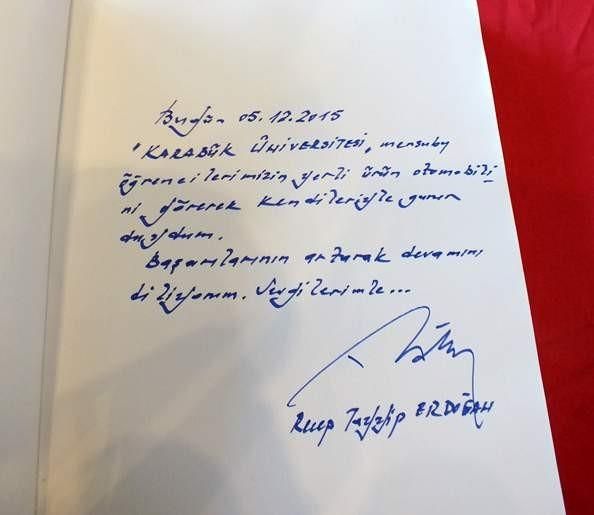 Bugün 05.12.2015
"KARABÜK ÜNİVERSİTESİ, mensubu
öğrencilerimizin yerli ürün otomobili
ni görerek kendileriyle gurur
duydum.
Başarılarının artarak devamını
diliyorum. Sevgilerimle...
Recep Tayyip ERDOĞAN